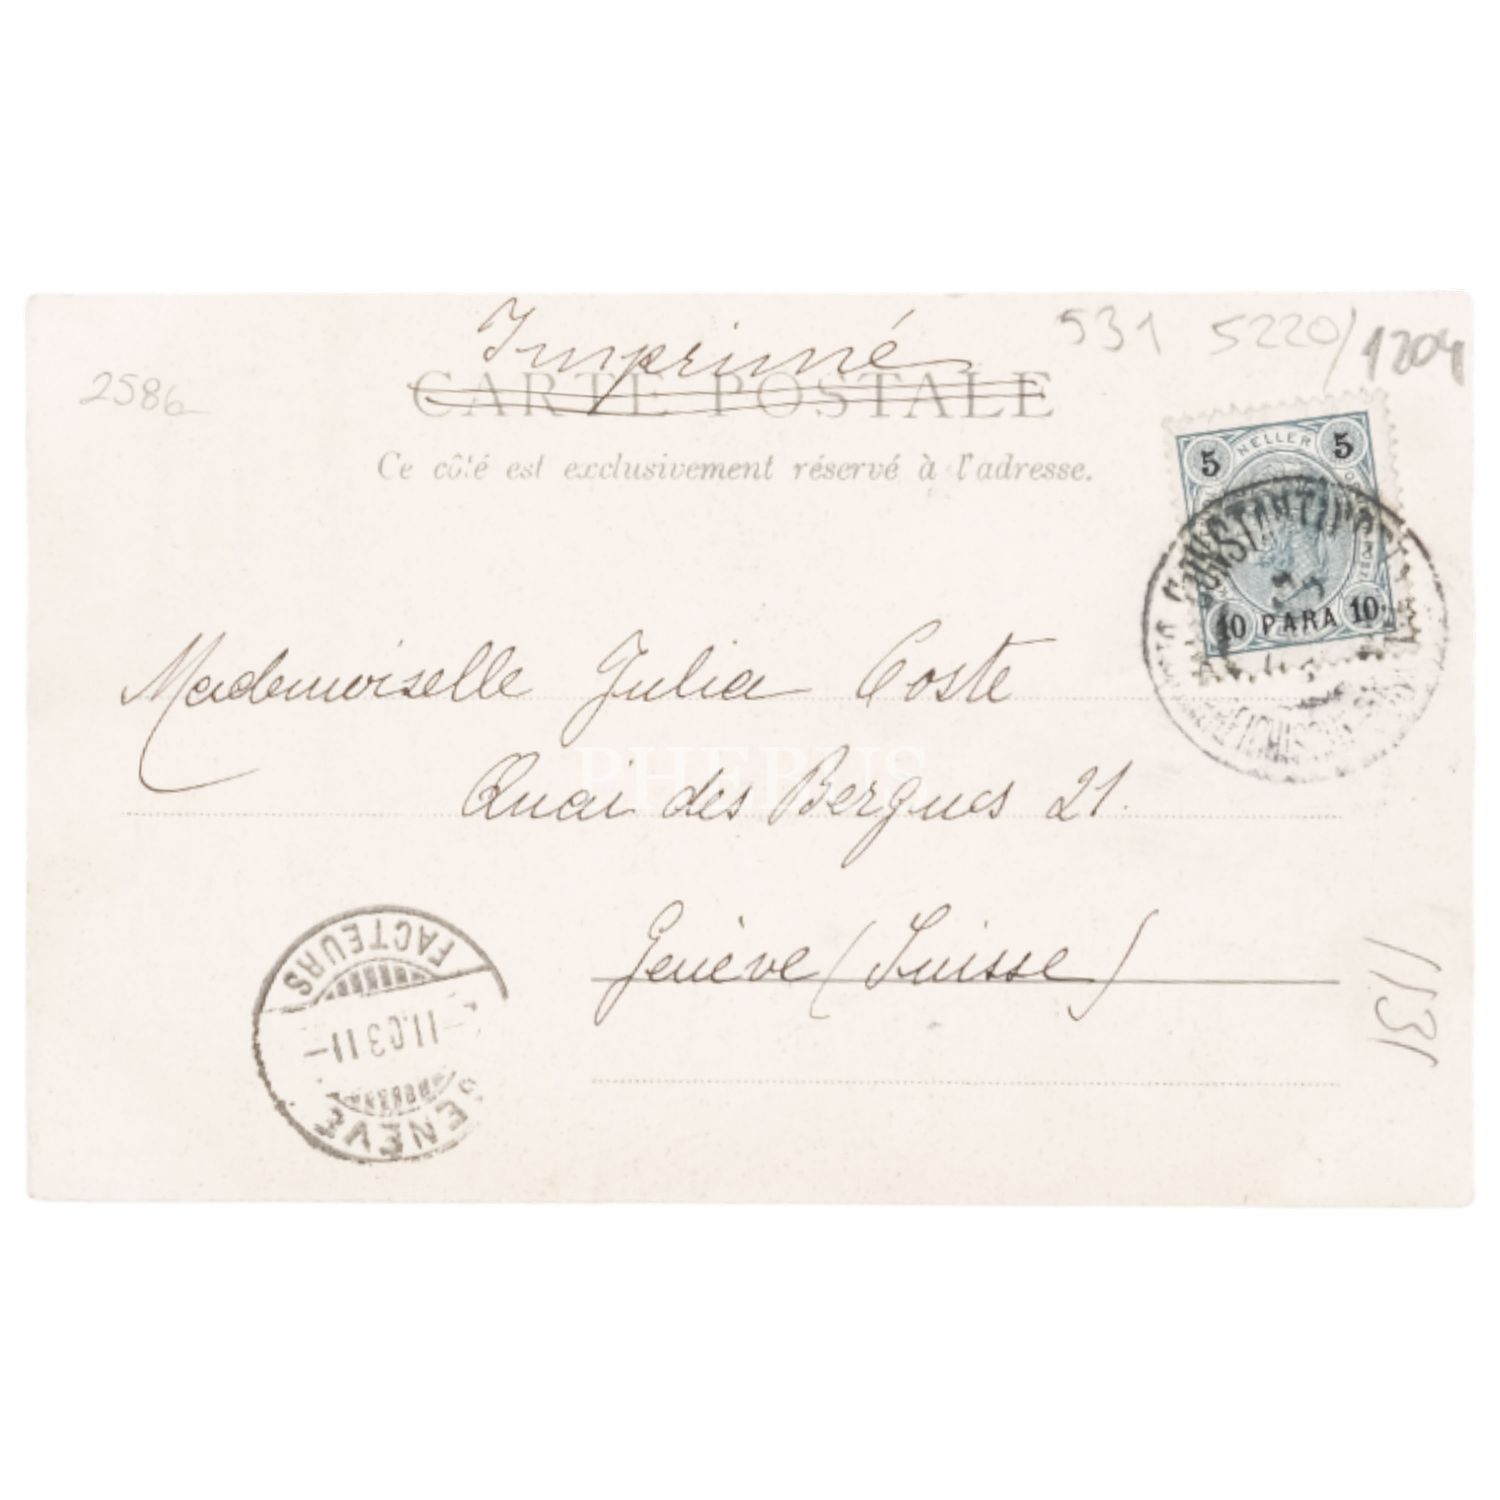 Imprimé
531 5220/1204
2586
CARTE POSTALE
Ce côté est exclusivement réservé à l'adresse.
5 HELLER 5
10 PARA 10
CONSTANTINOPEL
Mademoiselle Julia Coste
PHEBUS
Quai des Bergues 21.
Genève (Suisse)
FACTEURS
-11.03 11-
GENÈVE
1131